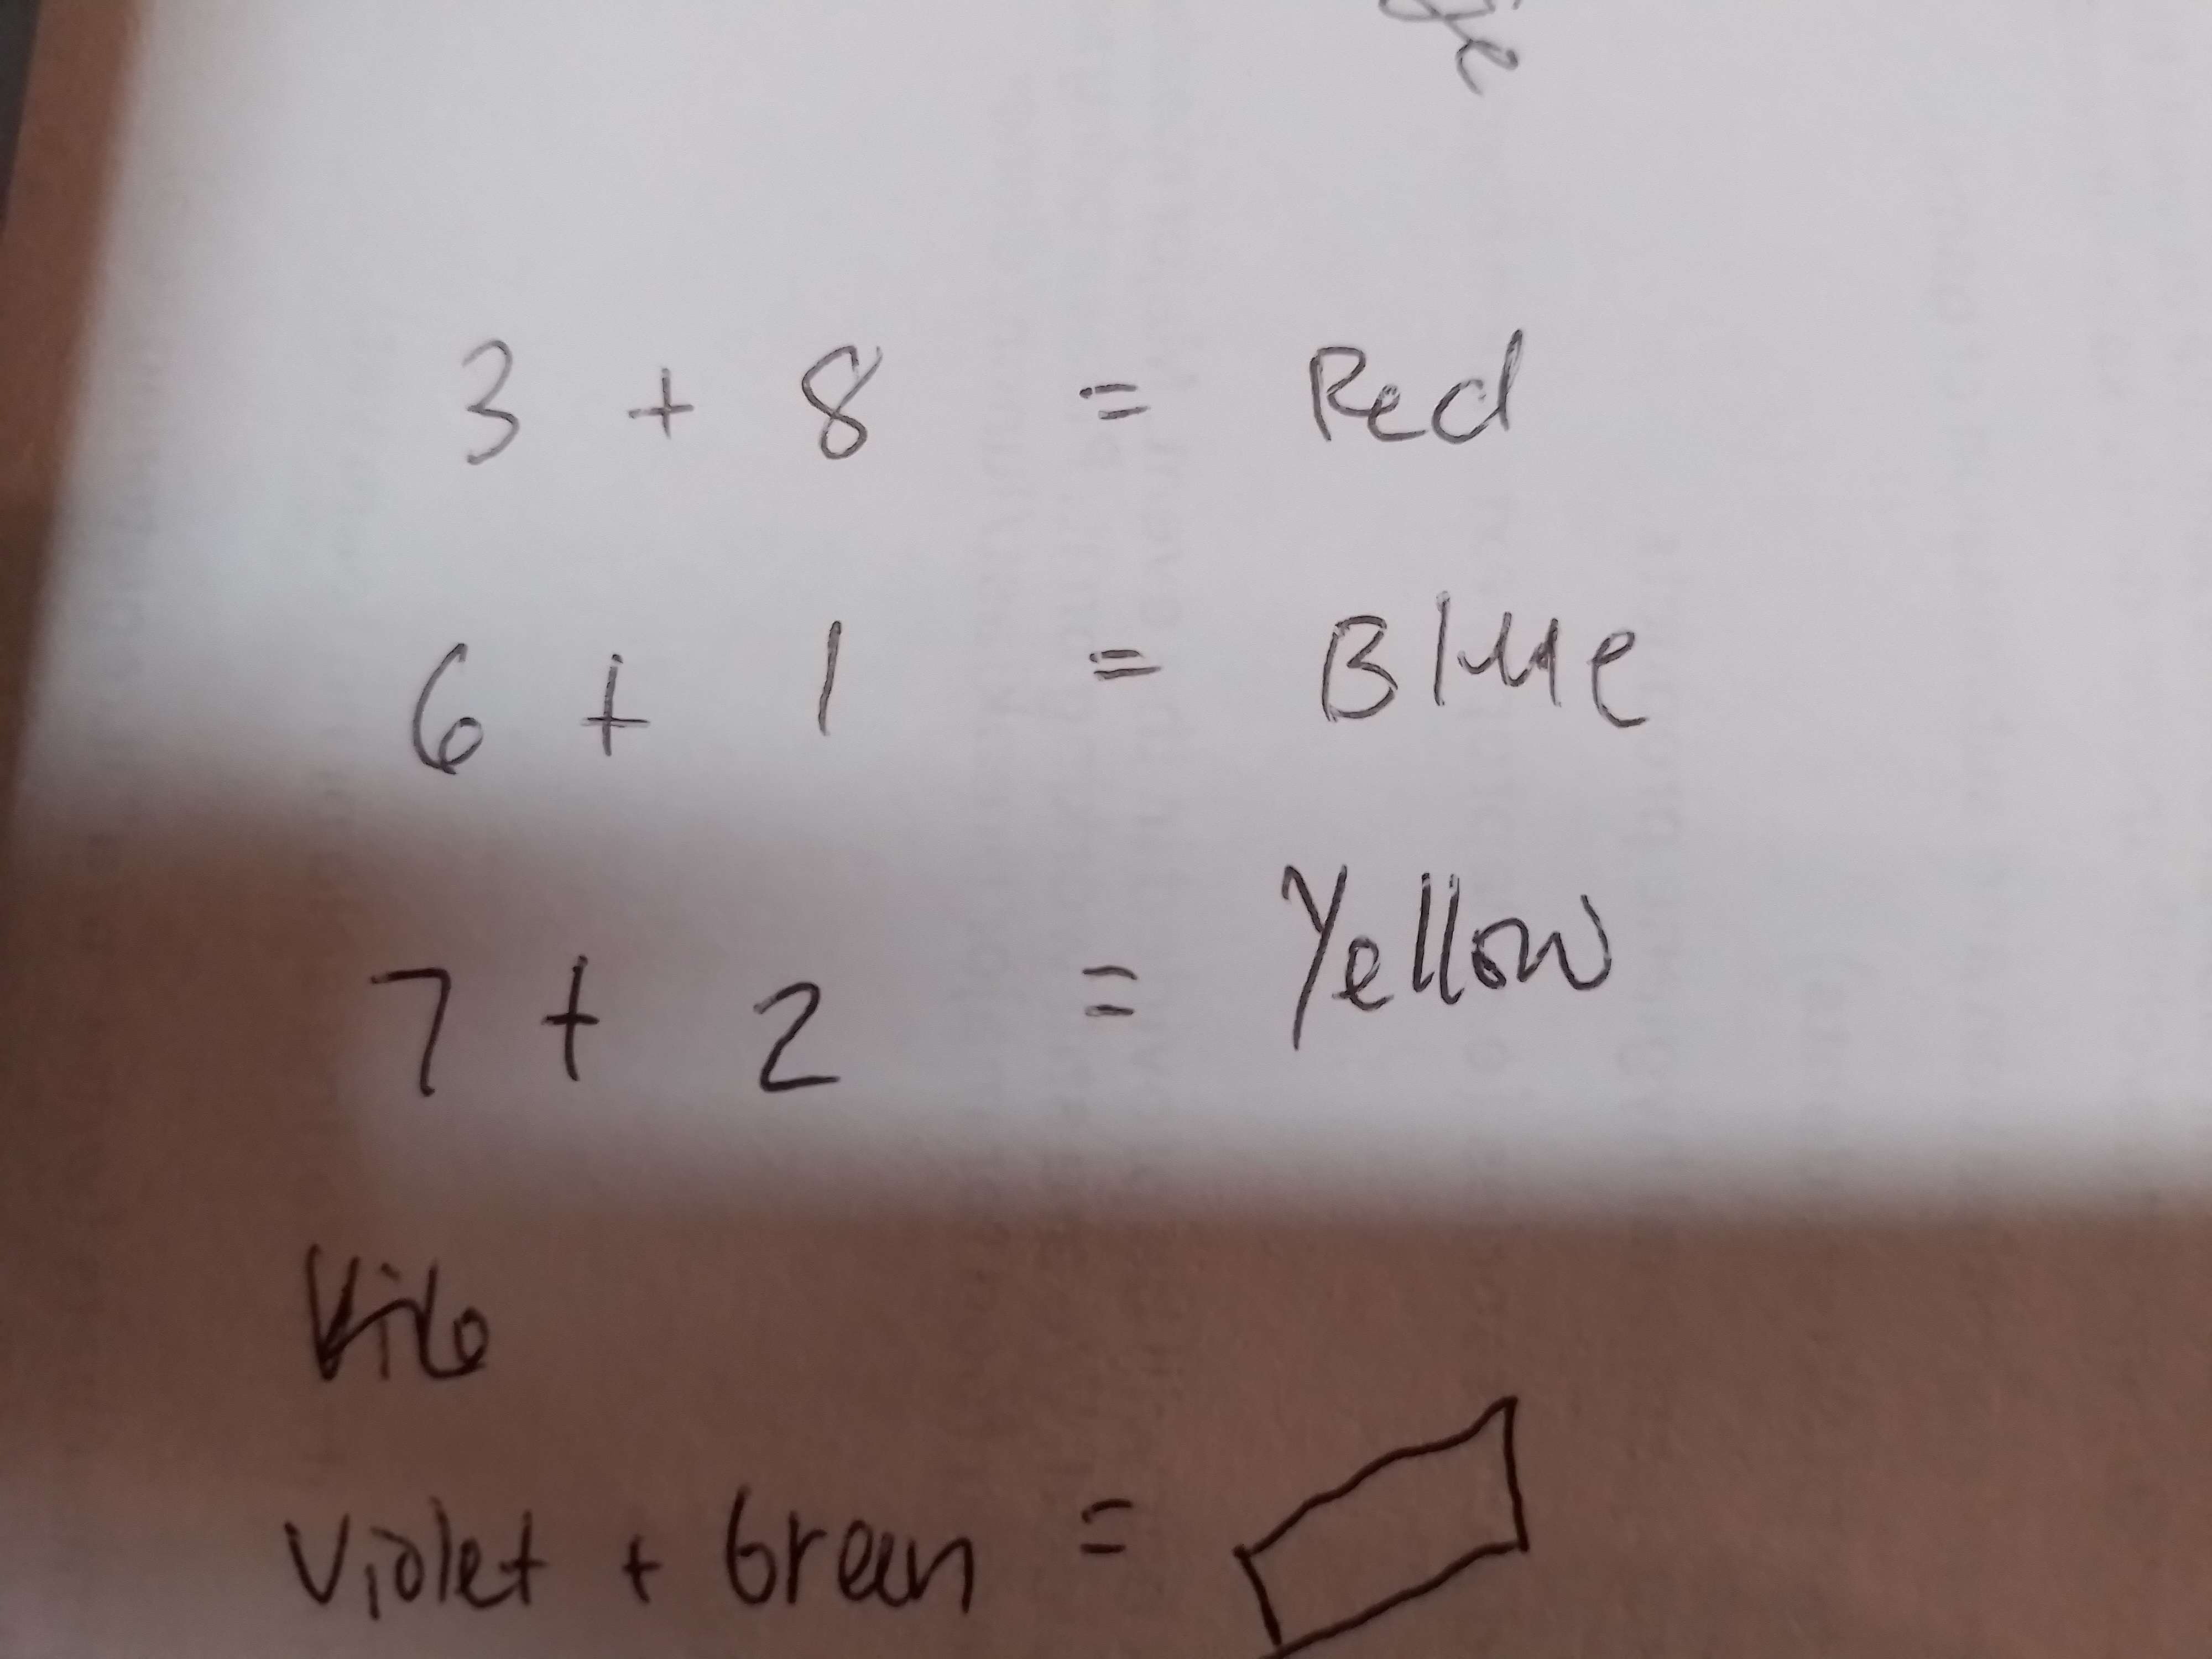 3 + 8 = Red
6 + 1 = Blue
7 + 2 = Yellow
Violet + Green =